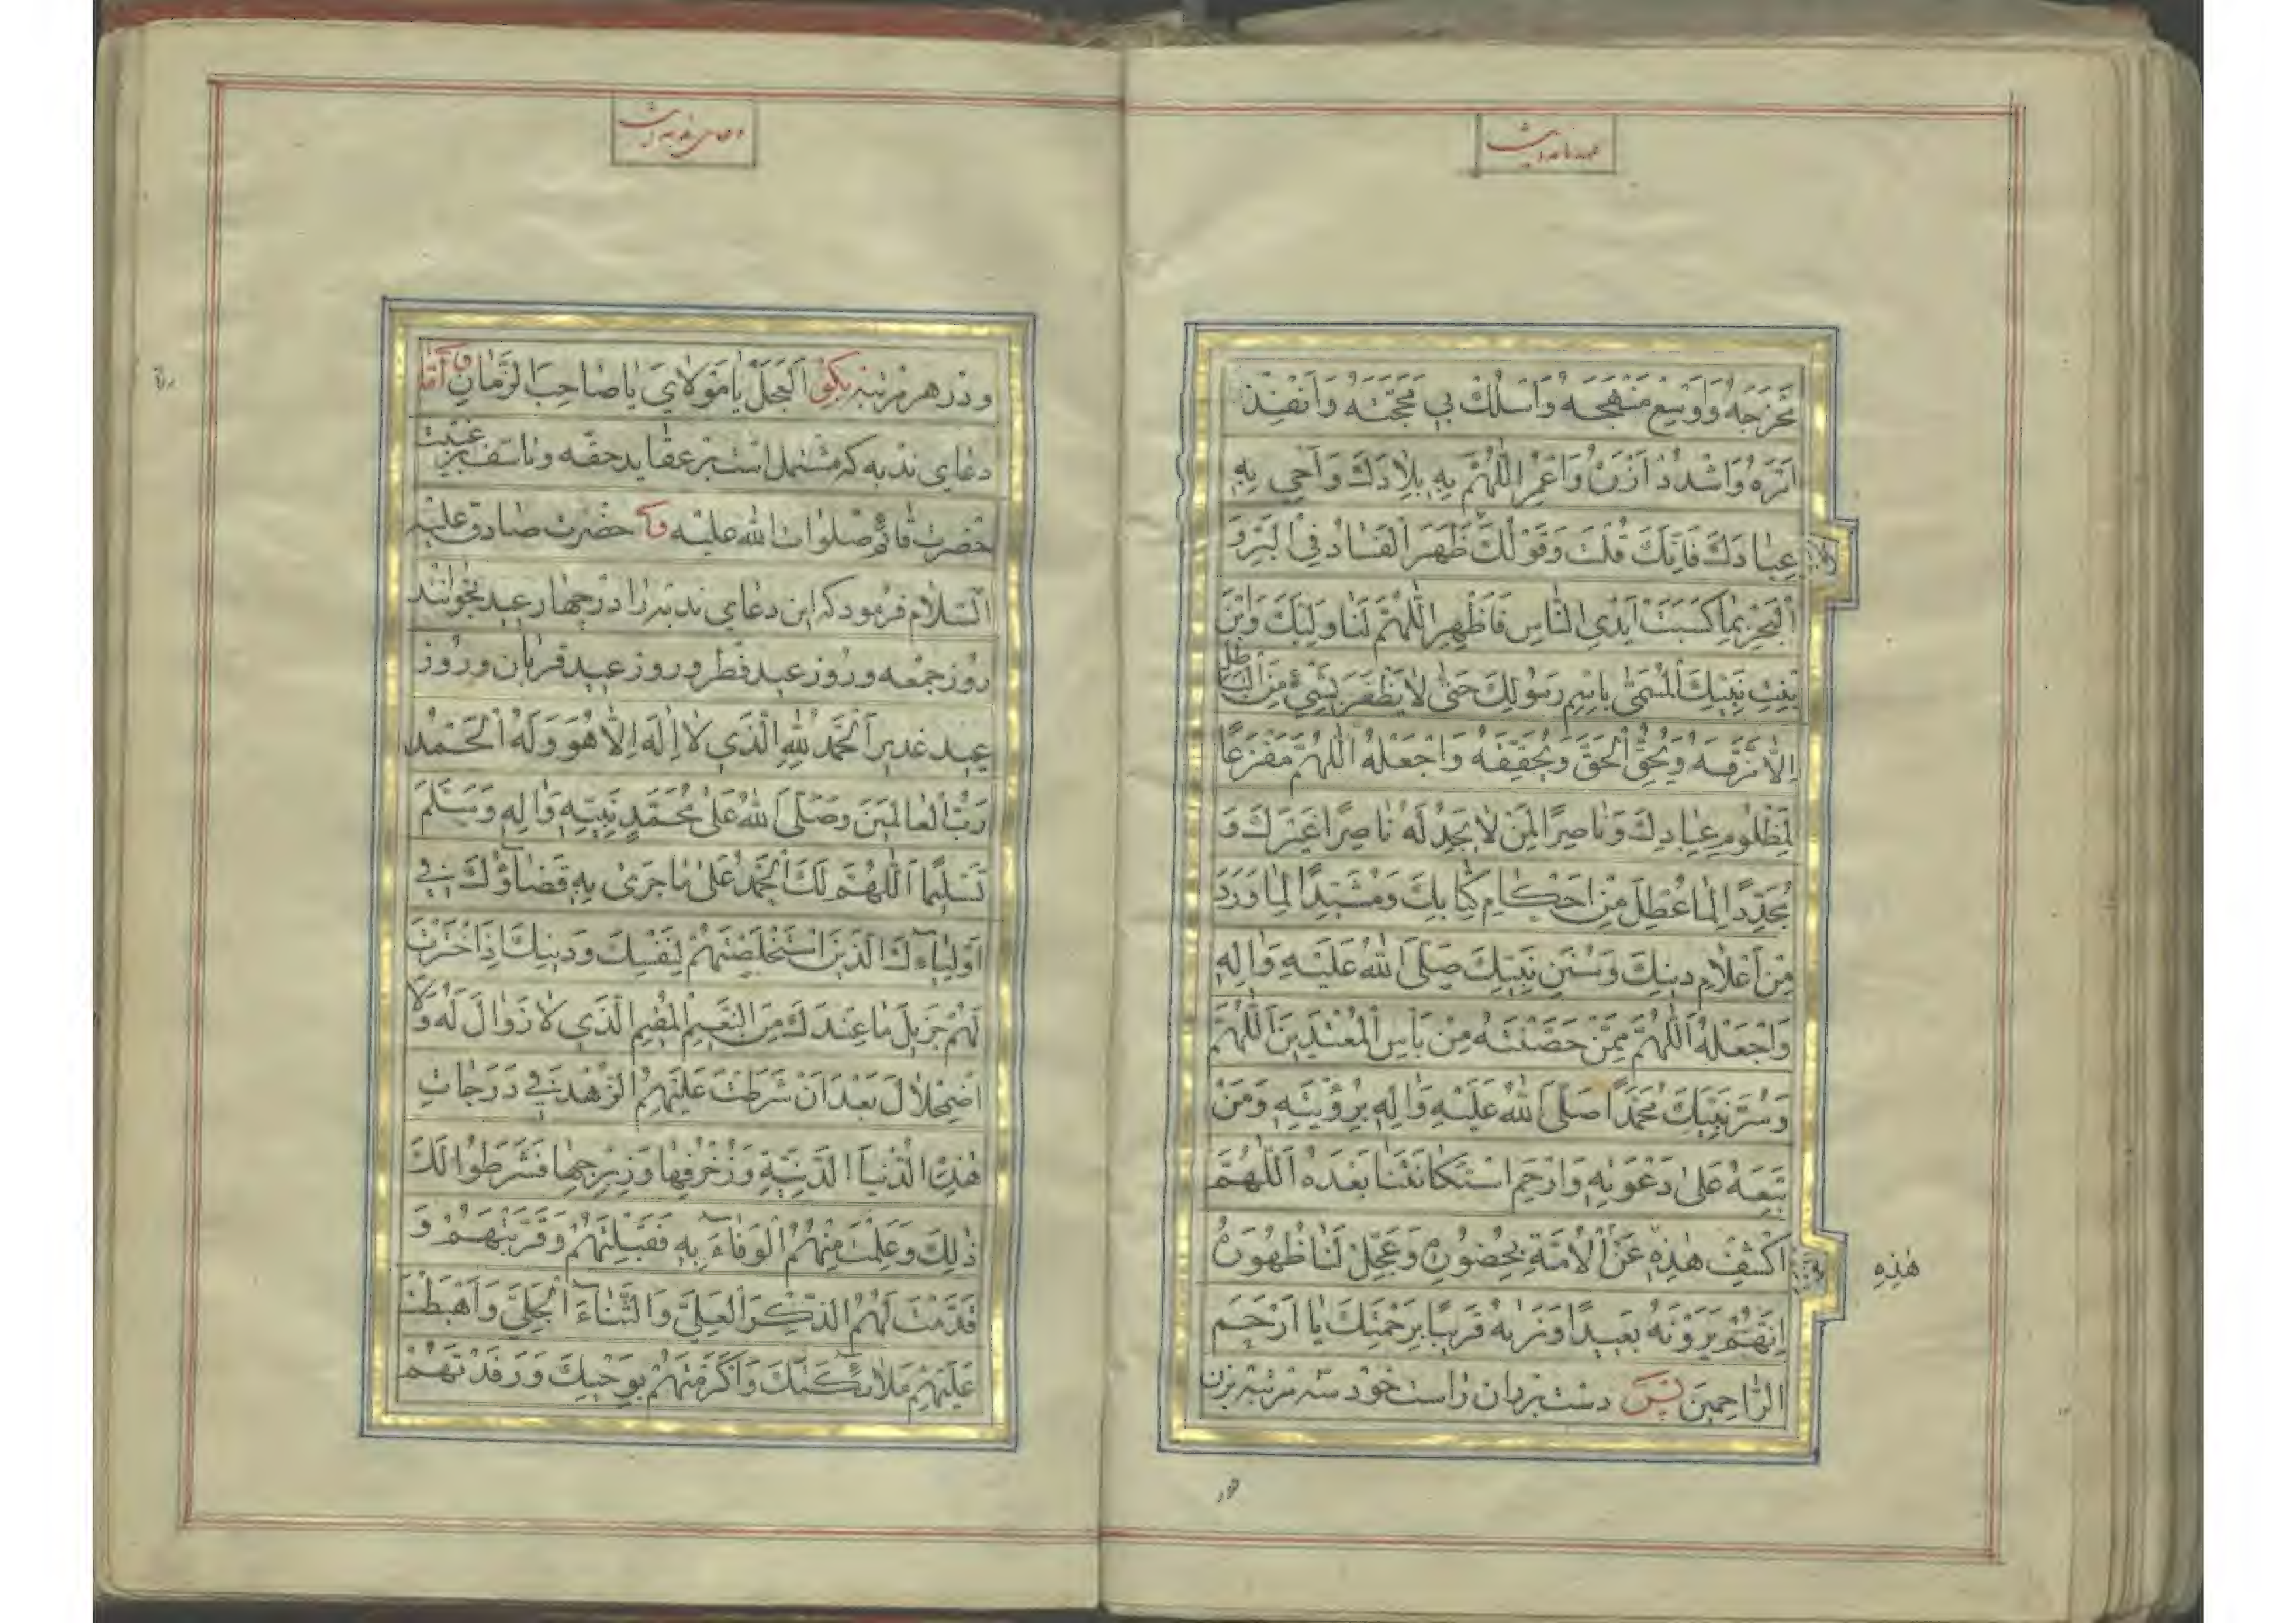 عهدنامه است
مَخْرَجَهُ وَاَوْسِعْ مَنْهَجَهُ وَاسْلُكْ بِي مَحَجَّتَهُ وَاَنْفِذْ
اَمْرَهُ وَاشْدُدْ اَزْرَهُ وَاعْمُرِ اللّٰهُمَّ بِهِ بِلادَكَ وَاَحْيِ بِهِ
عِبادَكَ فَاِنَّكَ قُلْتَ وَقَوْلُكَ ظَهَرَ الْفَسادُ فِي الْبَرِّ وَ
الْبَحْرِ بِما كَسَبَتْ اَيْدِي النّاسِ فَاَظْهِرِ اللّٰهُمَّ لَنا وَلِيَّكَ وَابْنَ
بِنْتِ نَبِيِّكَ الْمُسَمّٰى بِاسْمِ رَسُولِكَ حَتّٰى لا يَظْفَرَ بِشَيْءٍ مِنَ الْباطِلِ
اِلّا مَزَّقَهُ وَيُحِقَّ الْحَقَّ وَيُحَقِّقَهُ وَاجْعَلْهُ اللّٰهُمَّ مَفْزَعًا
لِمَظْلُومِ عِبادِكَ وَناصِرًا لِمَنْ لا يَجِدُ لَهُ ناصِرًا غَيْرَكَ وَ
مُجَدِّدًا لِما عُطِّلَ مِنْ اَحْكامِ كِتابِكَ وَمُشَيِّدًا لِما وَرَدَ
مِنْ اَعْلامِ دِينِكَ وَسُنَنِ نَبِيِّكَ صَلَّى اللّٰهُ عَلَيْهِ وَاٰلِهِ
وَاجْعَلْهُ اللّٰهُمَّ مِمَّنْ حَصَّنْتَهُ مِنْ بَأْسِ الْمُعْتَدِينَ اَللّٰهُمَّ
وَسُرَّ نَبِيَّكَ مُحَمَّدًا صَلَّى اللّٰهُ عَلَيْهِ وَاٰلِهِ بِرُؤْيَتِهِ وَمَنْ
تَبِعَهُ عَلٰى دَعْوَتِهِ وَارْحَمِ اسْتِكانَتَنا بَعْدَهُ اَللّٰهُمَّ
اكْشِفْ هٰذِهِ عَنِ الْاُمَّةِ بِحُضُورِهِ وَعَجِّلْ لَنا ظُهُورَهُ
هٰذِهِ
اِنَّهُمْ يَرَوْنَهُ بَعِيدًا وَنَرٰيهُ قَرِيبًا بِرَحْمَتِكَ يا اَرْحَمَ
الرّاحِمِينَ پس دست بر ران راست خود سه مرتبه بزن
ودر
دعای ندبه است
ودر هر مرتبه بگو اَلْعَجَلَ يا مَوْلايَ يا صاحِبَ الزَّمانِ و اما
دعای ندبه که مشتمل است بر عقاید حقه و تاسف بر غیبت
حضرت قائم صلوات الله علیه حضرت صادق علیه
السلام فرمود که این دعای ندبه را در چهار عید بخوانند
روز جمعه و روز عید فطر و روز عید قربان و روز
عید غدیر اَلْحَمْدُ لِلّٰهِ الَّذِي لا اِلٰهَ اِلّا هُوَ وَلَهُ الْحَمْدُ
رَبُّ الْعالَمِينَ وَصَلَّى اللّٰهُ عَلٰى مُحَمَّدٍ نَبِيِّهِ وَاٰلِهِ وَسَلَّمَ
تَسْلِيمًا اَللّٰهُمَّ لَكَ الْحَمْدُ عَلٰى ما جَرٰى بِهِ قَضاؤُكَ فِي
اَوْلِياءِكَ الَّذِينَ اسْتَخْلَصْتَهُمْ لِنَفْسِكَ وَدِينِكَ اِذِ اخْتَرْتَ
لَهُمْ جَزِيلَ ما عِنْدَكَ مِنَ النَّعِيمِ الْمُقِيمِ الَّذِي لا زَوالَ لَهُ وَلَا
اضْمِحْلالَ بَعْدَ اَنْ شَرَطْتَ عَلَيْهِمُ الزُّهْدَ فِي دَرَجاتِ
هٰذِهِ الدُّنْيَا الدَّنِيَّةِ وَزُخْرُفِها وَزِبْرِجِها فَشَرَطُوا لَكَ
ذٰلِكَ وَعَلِمْتَ مِنْهُمُ الْوَفاءَ بِهِ فَقَبِلْتَهُمْ وَقَرَّبْتَهُمْ وَ
قَدَّمْتَ لَهُمُ الذِّكْرَ الْعَلِيَّ وَالثَّناءَ الْجَلِيَّ وَاَهْبَطْتَ
عَلَيْهِمْ مَلائِكَتَكَ وَاَكْرَمْتَهُمْ بِوَحْيِكَ وَرَفَدْتَهُمْ